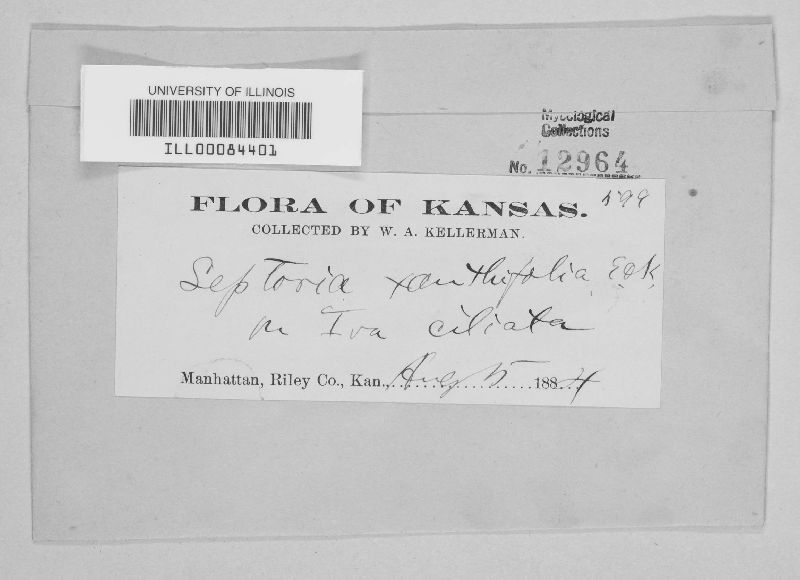 UNIVERSITY OF ILLINOIS
ILL00084401
Mycological
Collections
No. 12964
FLORA OF KANSAS. 599
COLLECTED BY W. A. KELLERMAN.
Septoria xanthifolia E&K
on Iva ciliata
Manhattan, Riley Co., Kan., Aug 5 1884